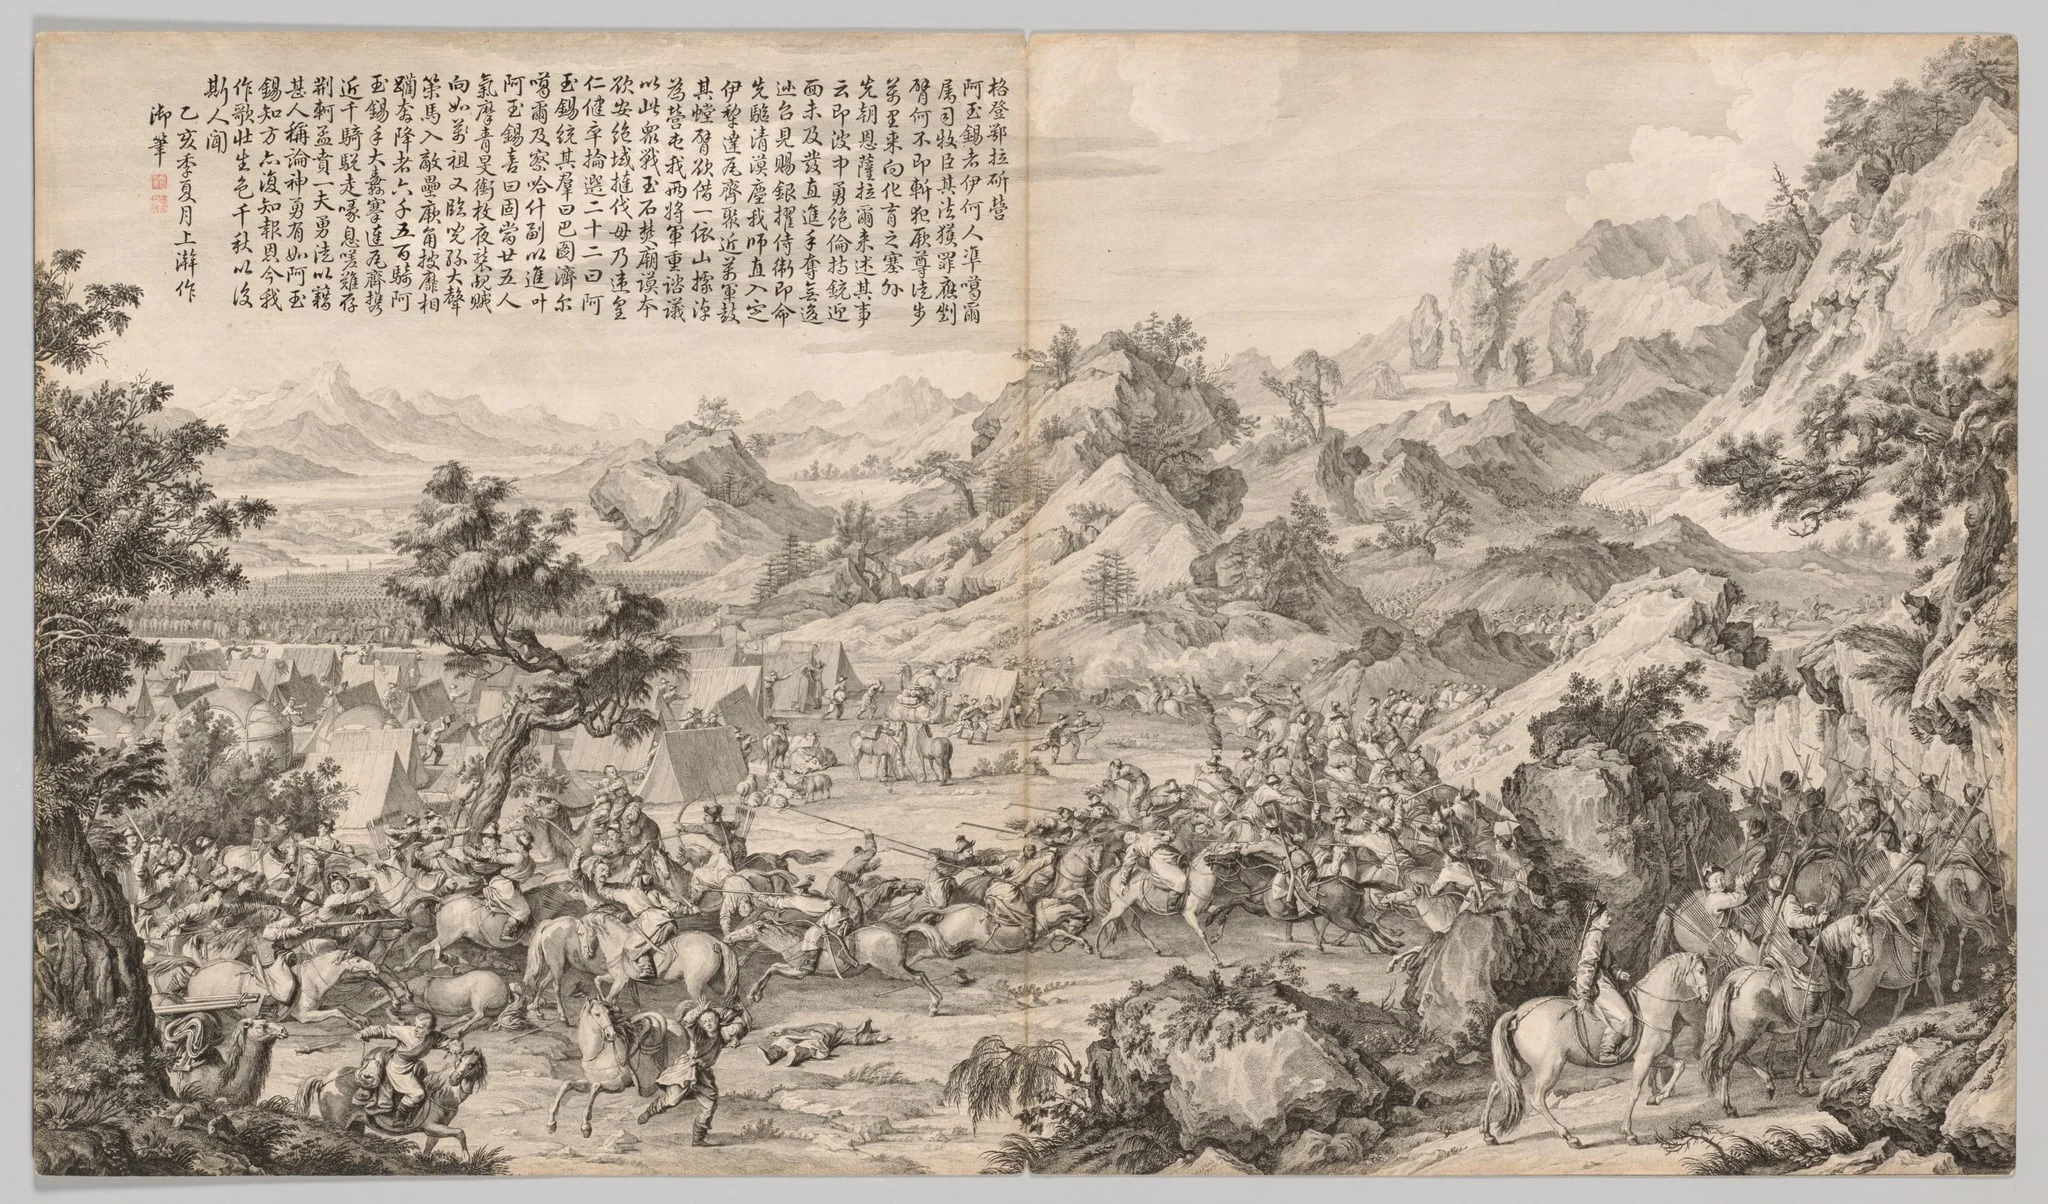 格登鄂拉斫營
阿玉錫者伊何人準噶爾
屬司牧臣其法獲罪應剉
臂何不即斬犯厥尊徒步
萬里来向化育之塞外
先朝恩薩拉爾来述其事
云即彼中勇絕倫持銃迎
面未及發直進手奪無逡
巡召見賜銀擢侍衛即命
先驅清漠塵我師直入定
伊犂達瓦齊聚近萬軍鼓
其螳臂欲借一依山據淖
為營屯我兩將軍重諮議
以此衆戰玉石焚廟謨本
欲安絕域撻伐毋乃違皇
仁健卒掄選二十二曰阿
玉錫統其羣曰巴圖濟尔
噶爾及察哈什副以進叶
阿玉錫喜曰固當廿五人
氣摩青旻銜枚夜襲覘賊
向如萬祖父臨兒孫大聲
策馬入敵壘厥角披靡相
躪奔降者六千五百騎阿
玉錫手大纛搴達瓦齊攜
近千騎駾走喙息嗟難存
荊軻孟賁一夫勇徒以藉
甚人稱論神勇有如阿玉
錫知方亦復知報恩今我
作歌壯生色千秋以後
斯人聞
乙亥季夏月上澣作
御筆